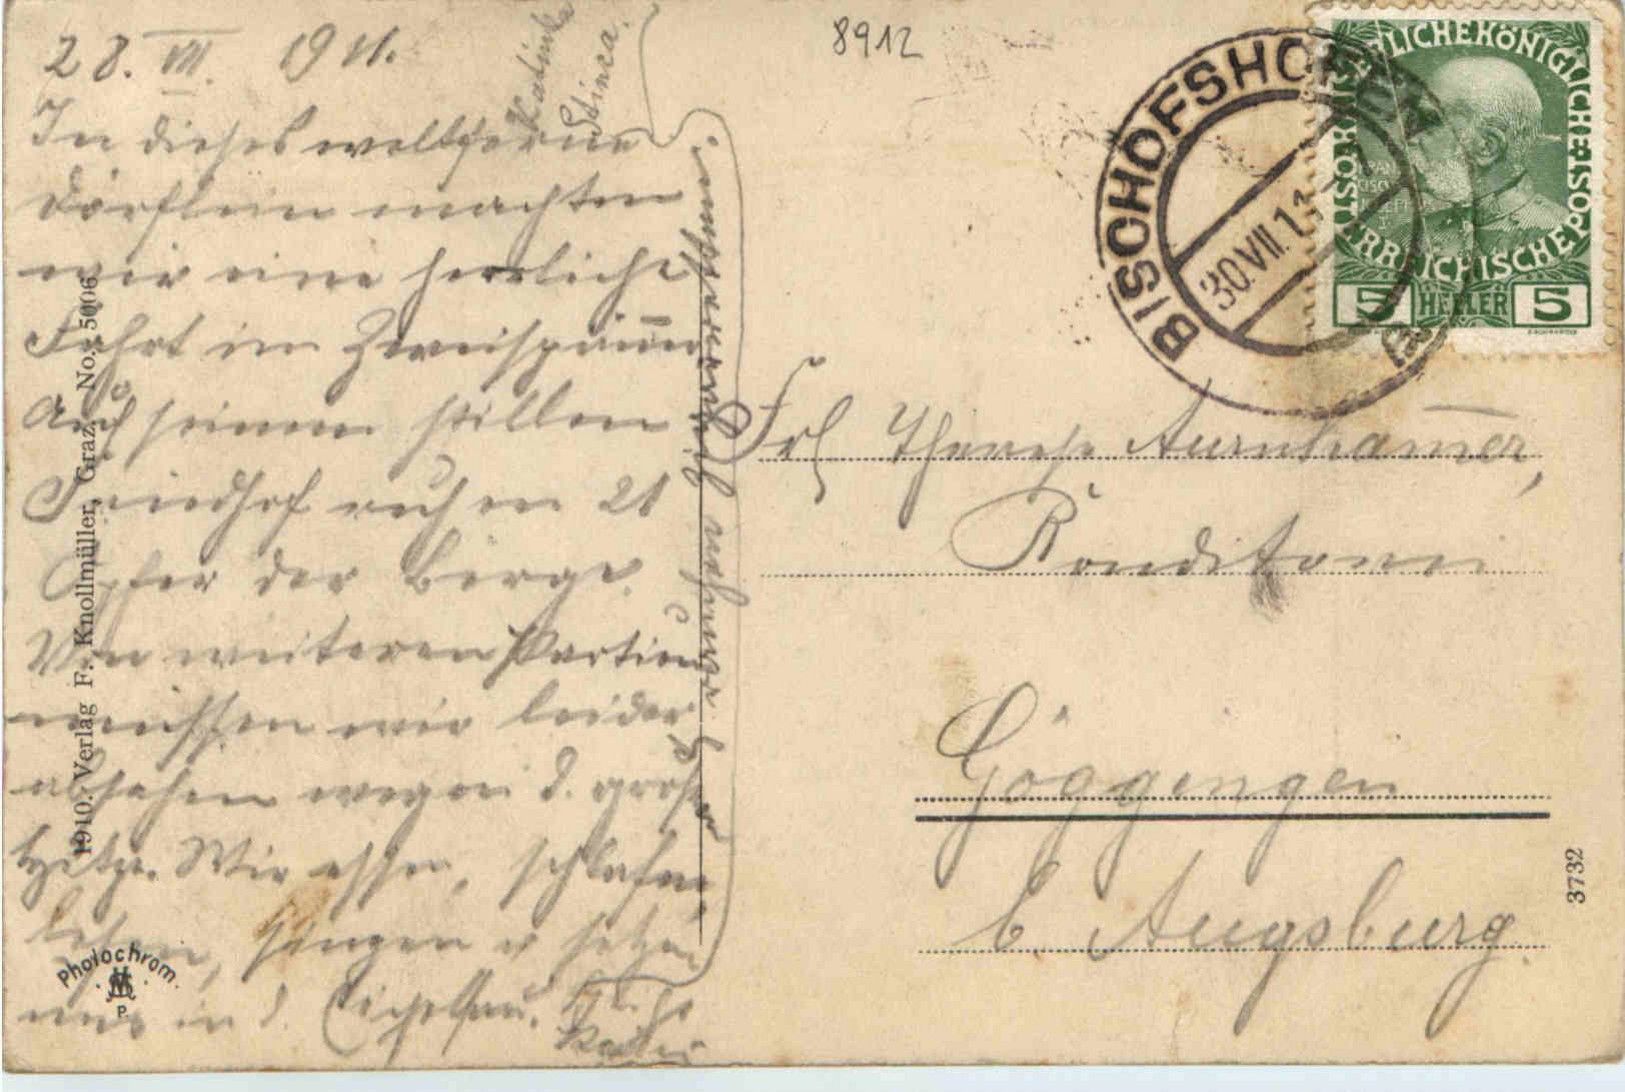 28. VII. 1911.
In dieses weltferne
Dörflein machten
wir eine herrliche
Fahrt im Zweispänner
Auf seinem stillen
Friedhof ruhen 21
Opfer der Berge.
Von weiteren Partien
müssen wir leider
absehen wegen d. großen
Hitze. Wir essen, schlafen,
leben, singen u. setzen
uns in d.
8912
BISCHOFSHOFEN
30.VII.11
KAISERLICHE KÖNIGLICHE ÖSTERREICHISCHE POST
5 HELLER 5
Frl Therese Aurnhamer,
Konditorei
Göggingen
b. Augsburg.
1910. Verlag F. Knollmüller, Graz. No. 5006
Photochrom.
P.
3732